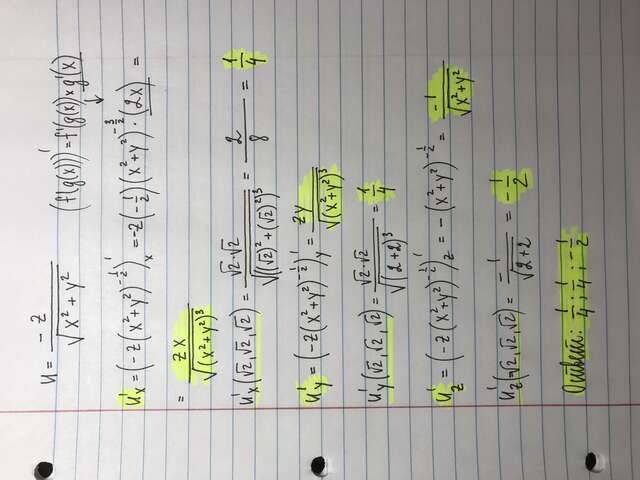 u = -z / √(x² + y²)    (f(g(x)))' = f'(g(x)) × g'(x)
u'x = (-z(x² + y²)^(-1/2))'x = -z(-1/2)(x² + y²)^(-3/2) · (2x) =
= zx / √((x² + y²)³)
u'x(√2, √2, √2) = √2·√2 / √(((√2)² + (√2)²)³) = 2/8 = 1/4
u'y = (-z(x² + y²)^(-1/2))'y = zy / √((x² + y²)³)
u'y(√2, √2, √2) = √2·√2 / √((2+2)³) = 1/4
u'z = (-z(x² + y²)^(-1/2))'z = -(x² + y²)^(-1/2) = -1 / √(x² + y²)
u'z(√2, √2, √2) = -1 / √(2+2) = -1/2
Ответ: 1/4 ; 1/4 ; -1/2